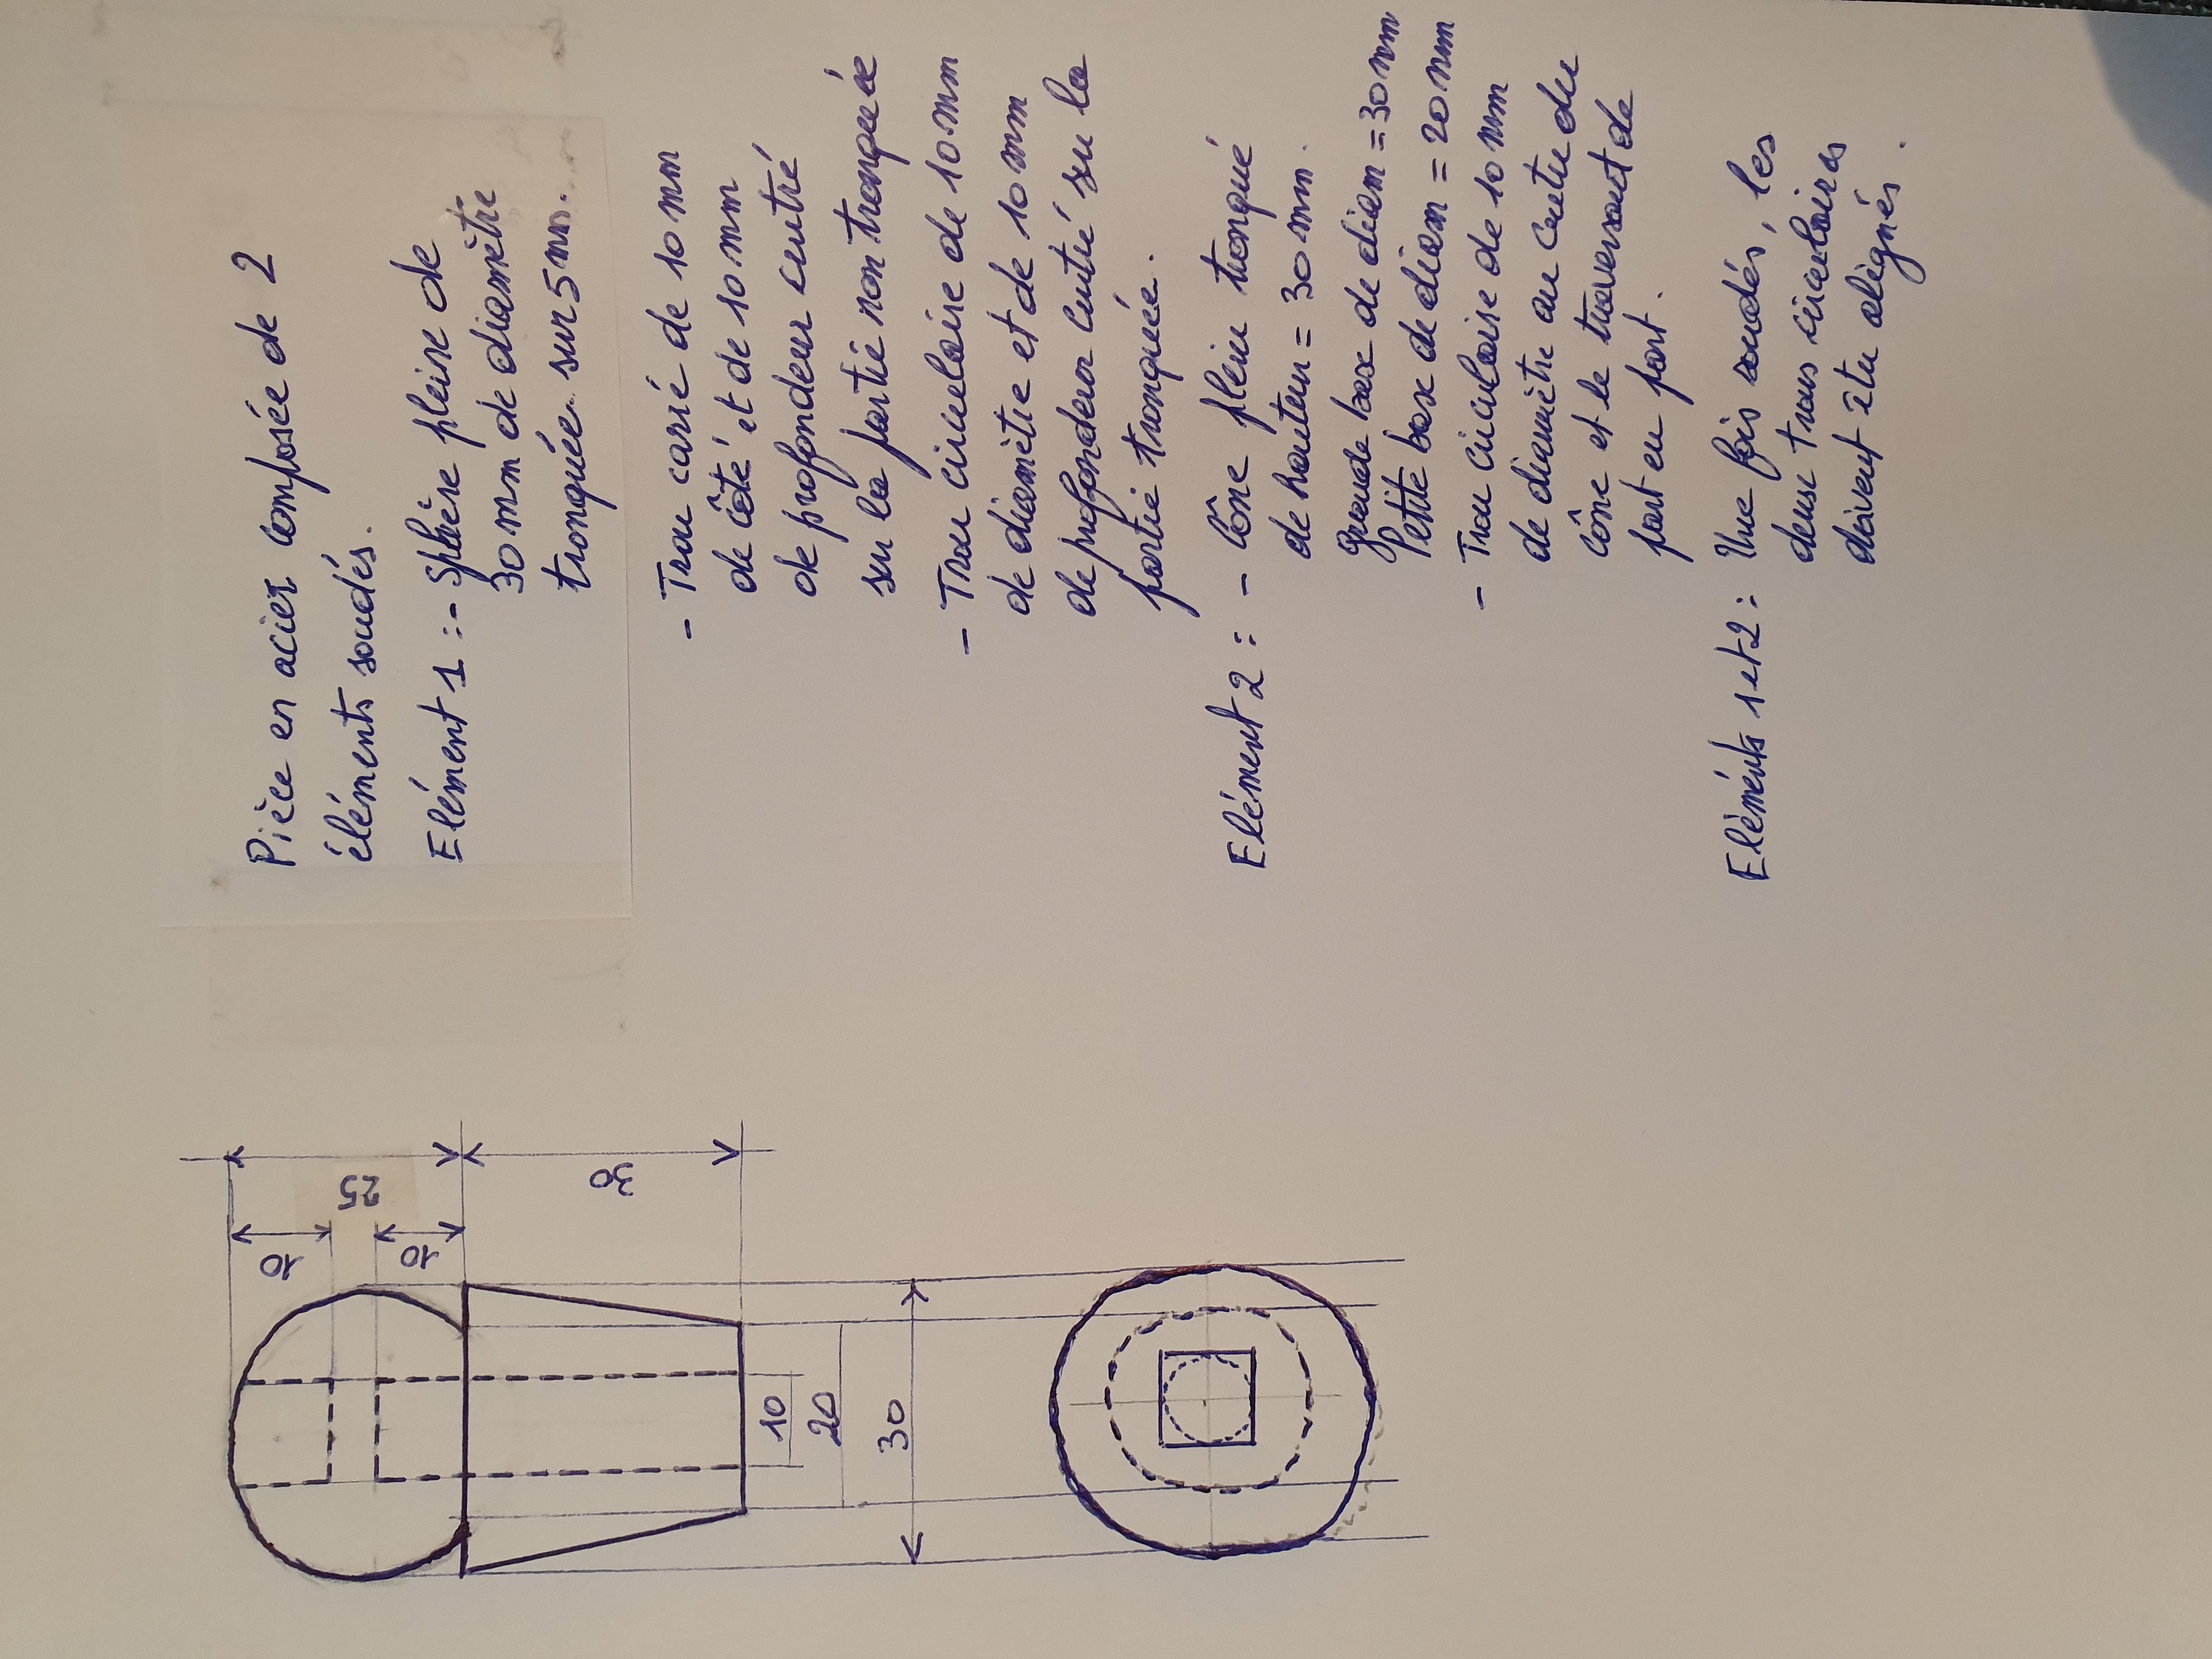 Pièce en acier composée de 2
éléments soudés.
Elément 1 : - Sphère pleine de
30 mm de diamètre
tronquée sur 5 mm.
- Trou carré de 10 mm
de côté et de 10 mm
de profondeur centré
sur la partie non tronquée
- Trou circulaire de 10 mm
de diamètre et de 10 mm
de profondeur centré sur la
partie tronquée.
Elément 2 : - Cône plein tronqué
de hauteur = 30 mm.
Grande base de diam = 30 mm
Petite base de diam = 20 mm
- Trou circulaire de 10 mm
de diamètre au centre du
cône et le traversant de
part en part.
Eléments 1 et 2 : Une fois soudés, les
deux trous circulaires
doivent être alignés.
10
25
10
30
10
20
30